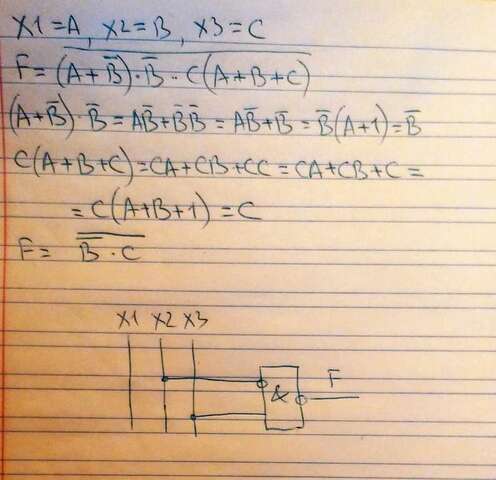 X1=A, X2=B, X3=C
F=\overline{(A+B̅)·B̅·C(A+B+C)}
(A+B̅)·B̅=AB̅+B̅B̅=AB̅+B̅=B̅(A+1)=B̅
C(A+B+C)=CA+CB+CC=CA+CB+C=
=C(A+B+1)=C
F=\overline{B̅·C}
X1 X2 X3
& F